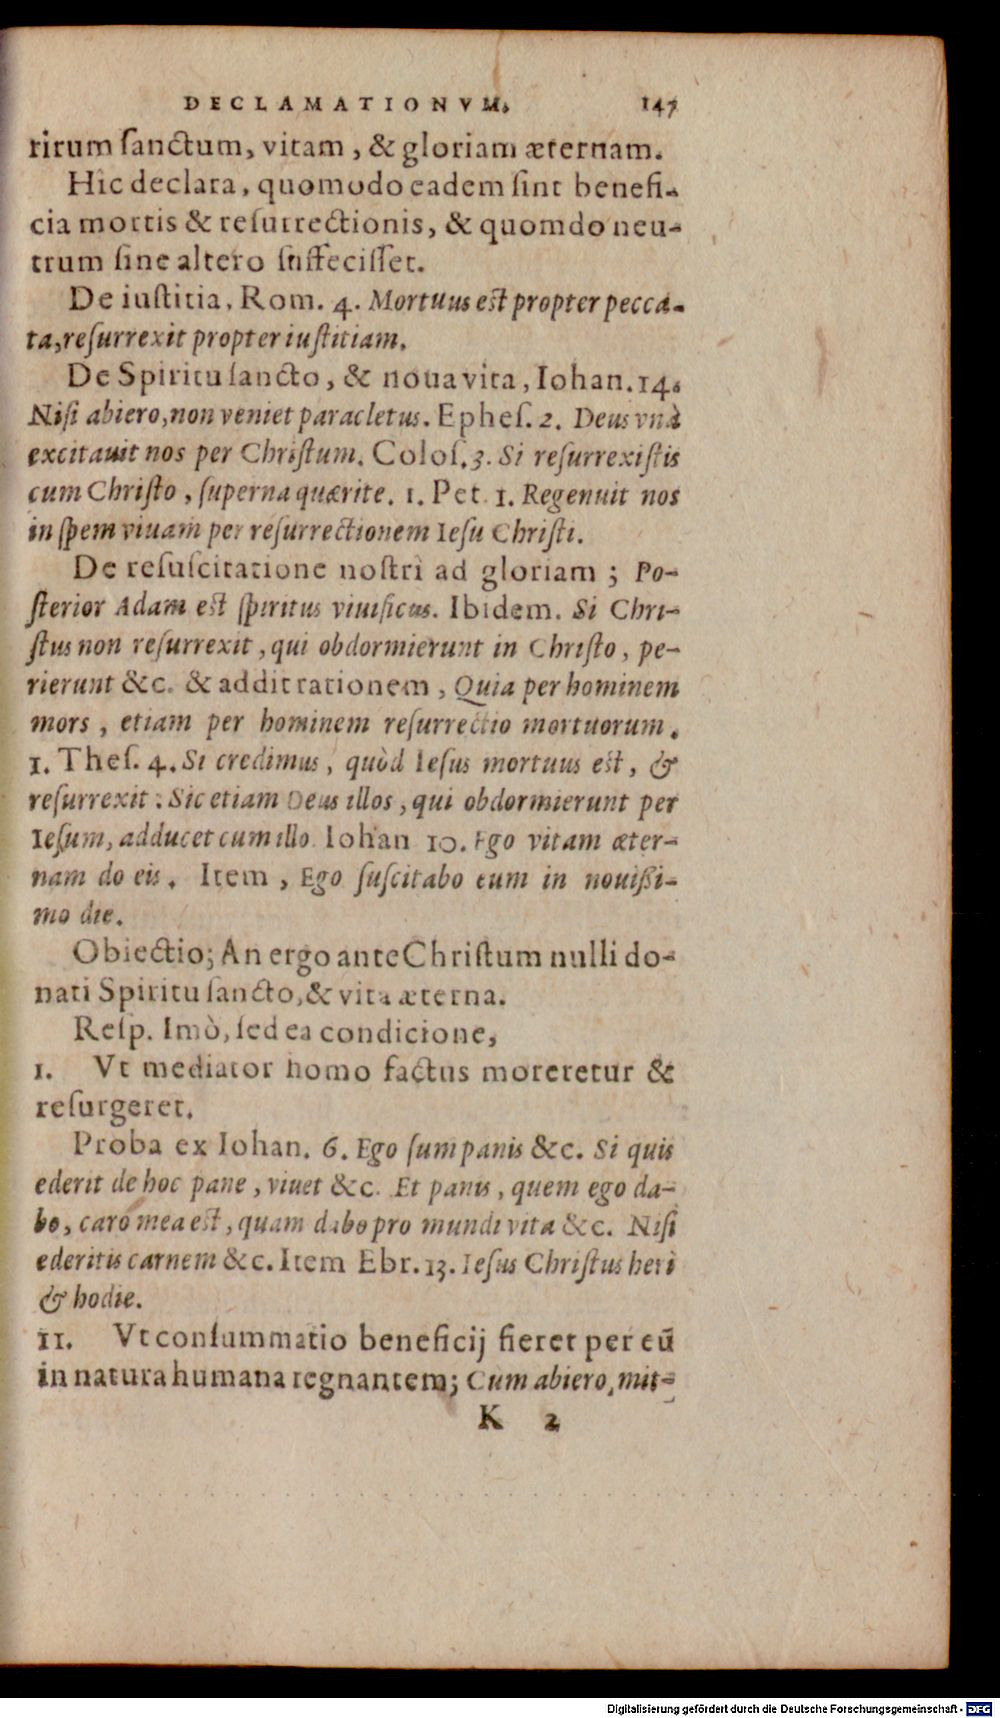 DECLAMATIONVM. 147
ritum ſanctum, vitam, & gloriam æternam.
Hic declara, quomodo eadem ſint benefi-
cia mortis & reſurrectionis, & quomdo neu-
trum ſine altero ſuffeciſſet.
De iuſtitia, Rom. 4. Mortuus eſt propter pecca-
ta, reſurrexit propter iuſtitiam.
De Spiritu ſancto, & noua vita, Iohan. 14.
Niſi abiero, non veniet paracletus. Epheſ. 2. Deus vnà
excitauit nos per Chriſtum. Coloſ. 3. Si reſurrexiſtis
cum Chriſto, ſuperna quærite. 1. Pet. 1. Regenuit nos
in ſpem viuam per reſurrectionem Ieſu Chriſti.
De reſuſcitatione noſtri ad gloriam; Po-
ſterior Adam eſt ſpiritus viuificus. Ibidem. Si Chri-
ſtus non reſurrexit, qui obdormierunt in Chriſto, pe-
rierunt &c. & addit rationem, Quia per hominem
mors, etiam per hominem reſurrectio mortuorum.
1. Theſ. 4. Si credimus, quòd Ieſus mortuus eſt, &
reſurrexit: Sic etiam Deus illos, qui obdormierunt per
Ieſum, adducet cum illo. Iohan 10. Ego vitam æter-
nam do eis. Item, Ego ſuſcitabo eum in nouißi-
mo die.
Obiectio; An ergo ante Chriſtum nulli do-
nati Spiritu ſancto, & vita æterna.
Reſp. Imò, ſed ea condicione,
1. Vt mediator homo factus moreretur &
reſurgeret.
Proba ex Iohan. 6. Ego ſum panis &c. Si quis
ederit de hoc pane, viuet &c. Et panis, quem ego da-
bo, caro mea eſt, quam dabo pro mundi vita &c. Niſi
ederitis carnem &c. Item Ebr. 13. Ieſus Chriſtus heri
& hodie.
11. Vt conſummatio beneficij fieret per eū
in natura humana regnantem; Cum abiero, mit-
K 2
Digitalisierung gefördert durch die Deutsche Forschungsgemeinschaft - DFG